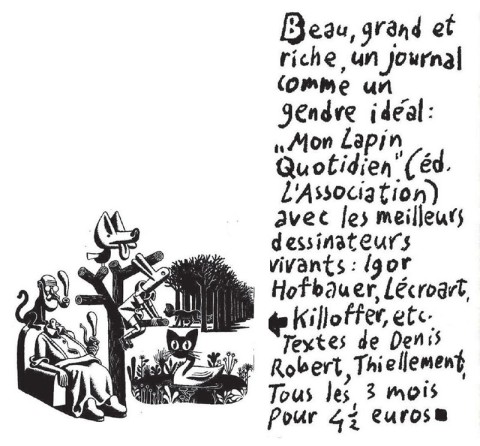 Beau, grand et
riche, un journal
comme un
gendre idéal:
„Mon Lapin
Quotidien" (éd.
L'Association)
avec les meilleurs
dessinateurs
vivants: Igor
Hofbauer, Lécroart,
Killoffer, etc.
Textes de Denis
Robert, Thiellement,
Tous les 3 mois
Pour 4 ½ euros